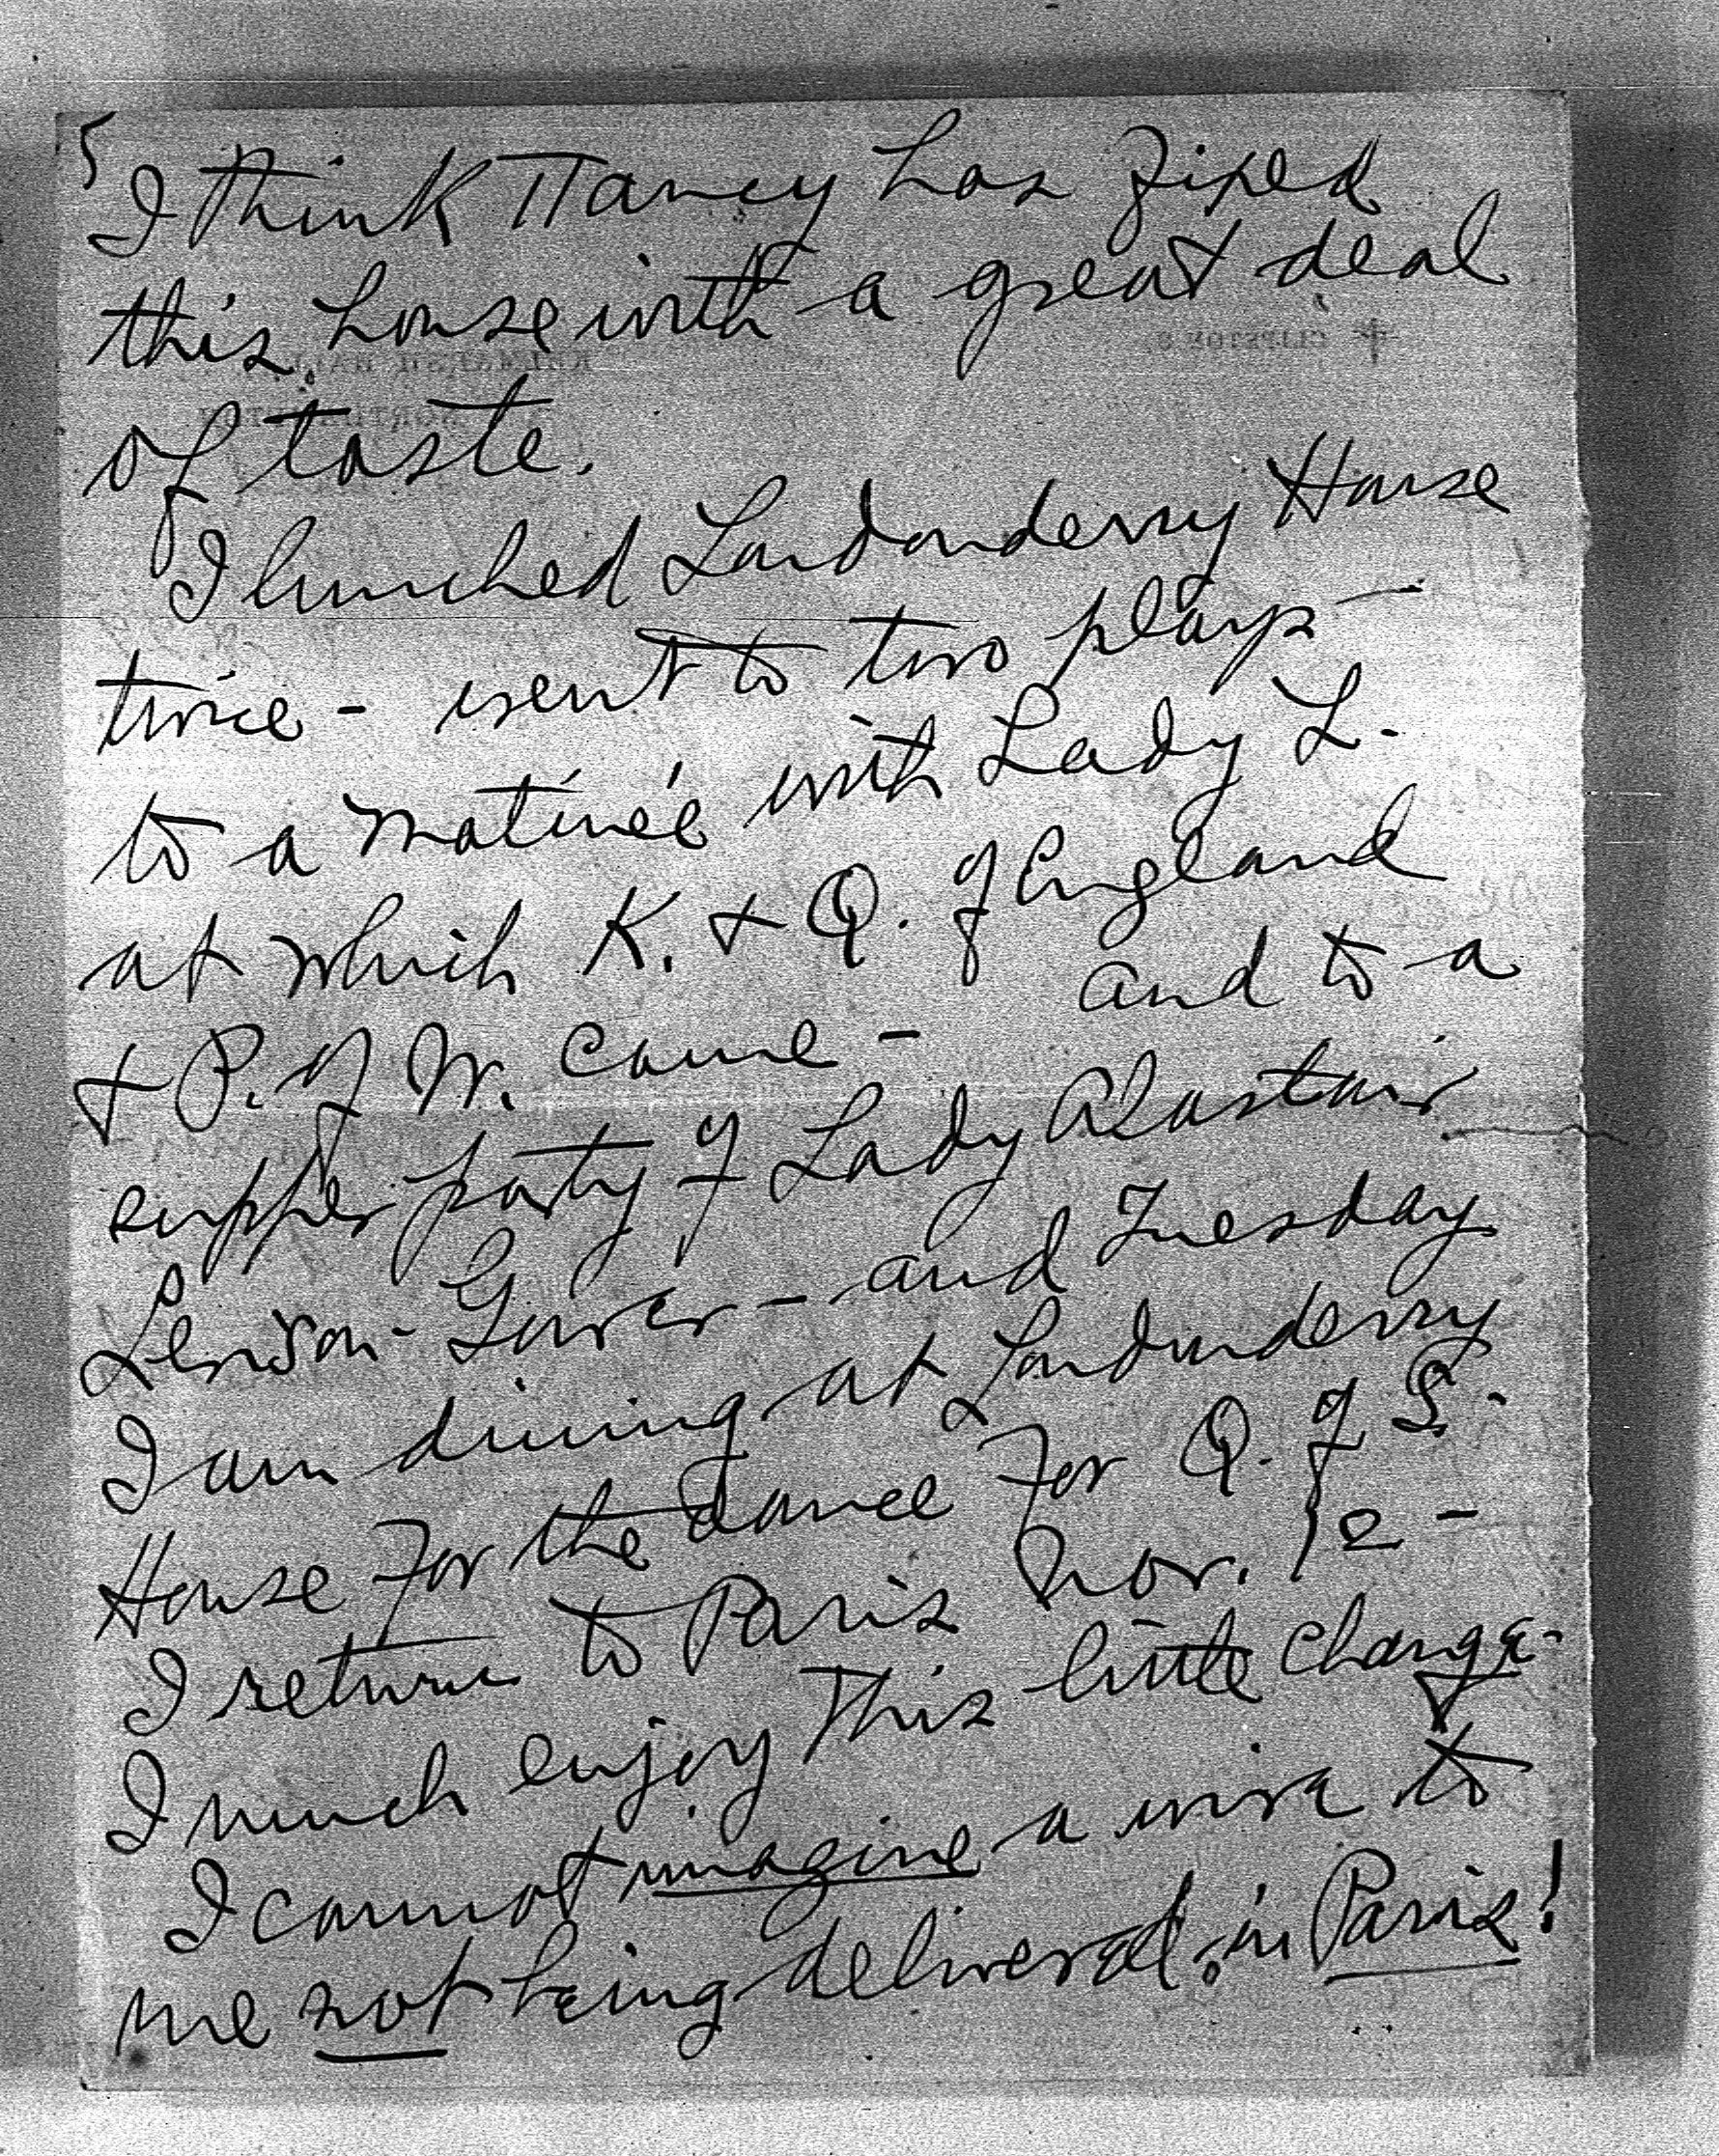 5
I think Nancy has fixed
this house with a great deal
of taste.
I lunched Londonderry House
twice - went to two plays -
to a matineé with Lady L.
at which K. & Q. of England
& P. of W. came - and to a
supper party of Lady Alastair
Leveson-Gower - and Tuesday
I am dining at Londonderry
House for the dance for Q. of S.
I return to Paris Nov. 12 -
I much enjoy this little change.
I cannot imagine a wire to
me not being delivered, in Paris!